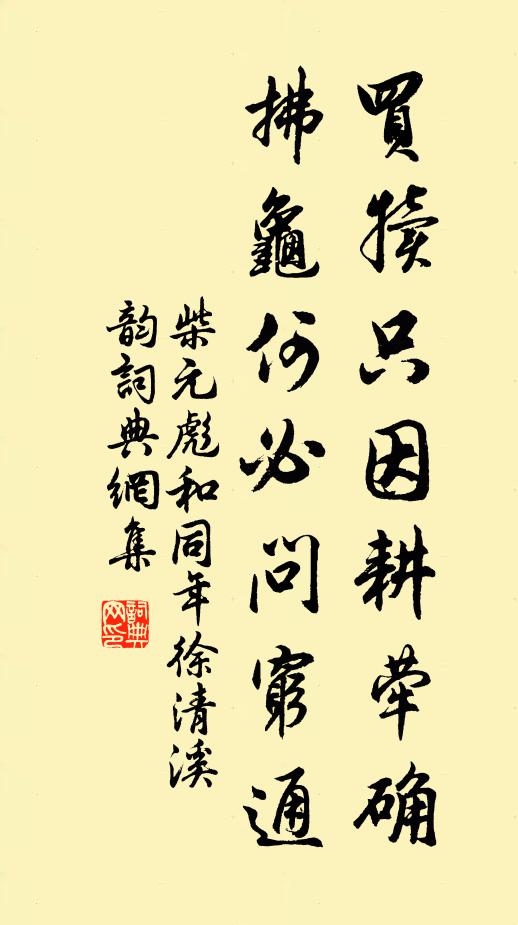 買犢只因耕犖确
拂龜何必問窮通
柴元彪和同年徐清溪
韵詞典網集
詞典
网印